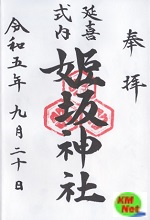 奉拝
延喜
式内
姫坂神社
令和五年九月二十日
KM
Net